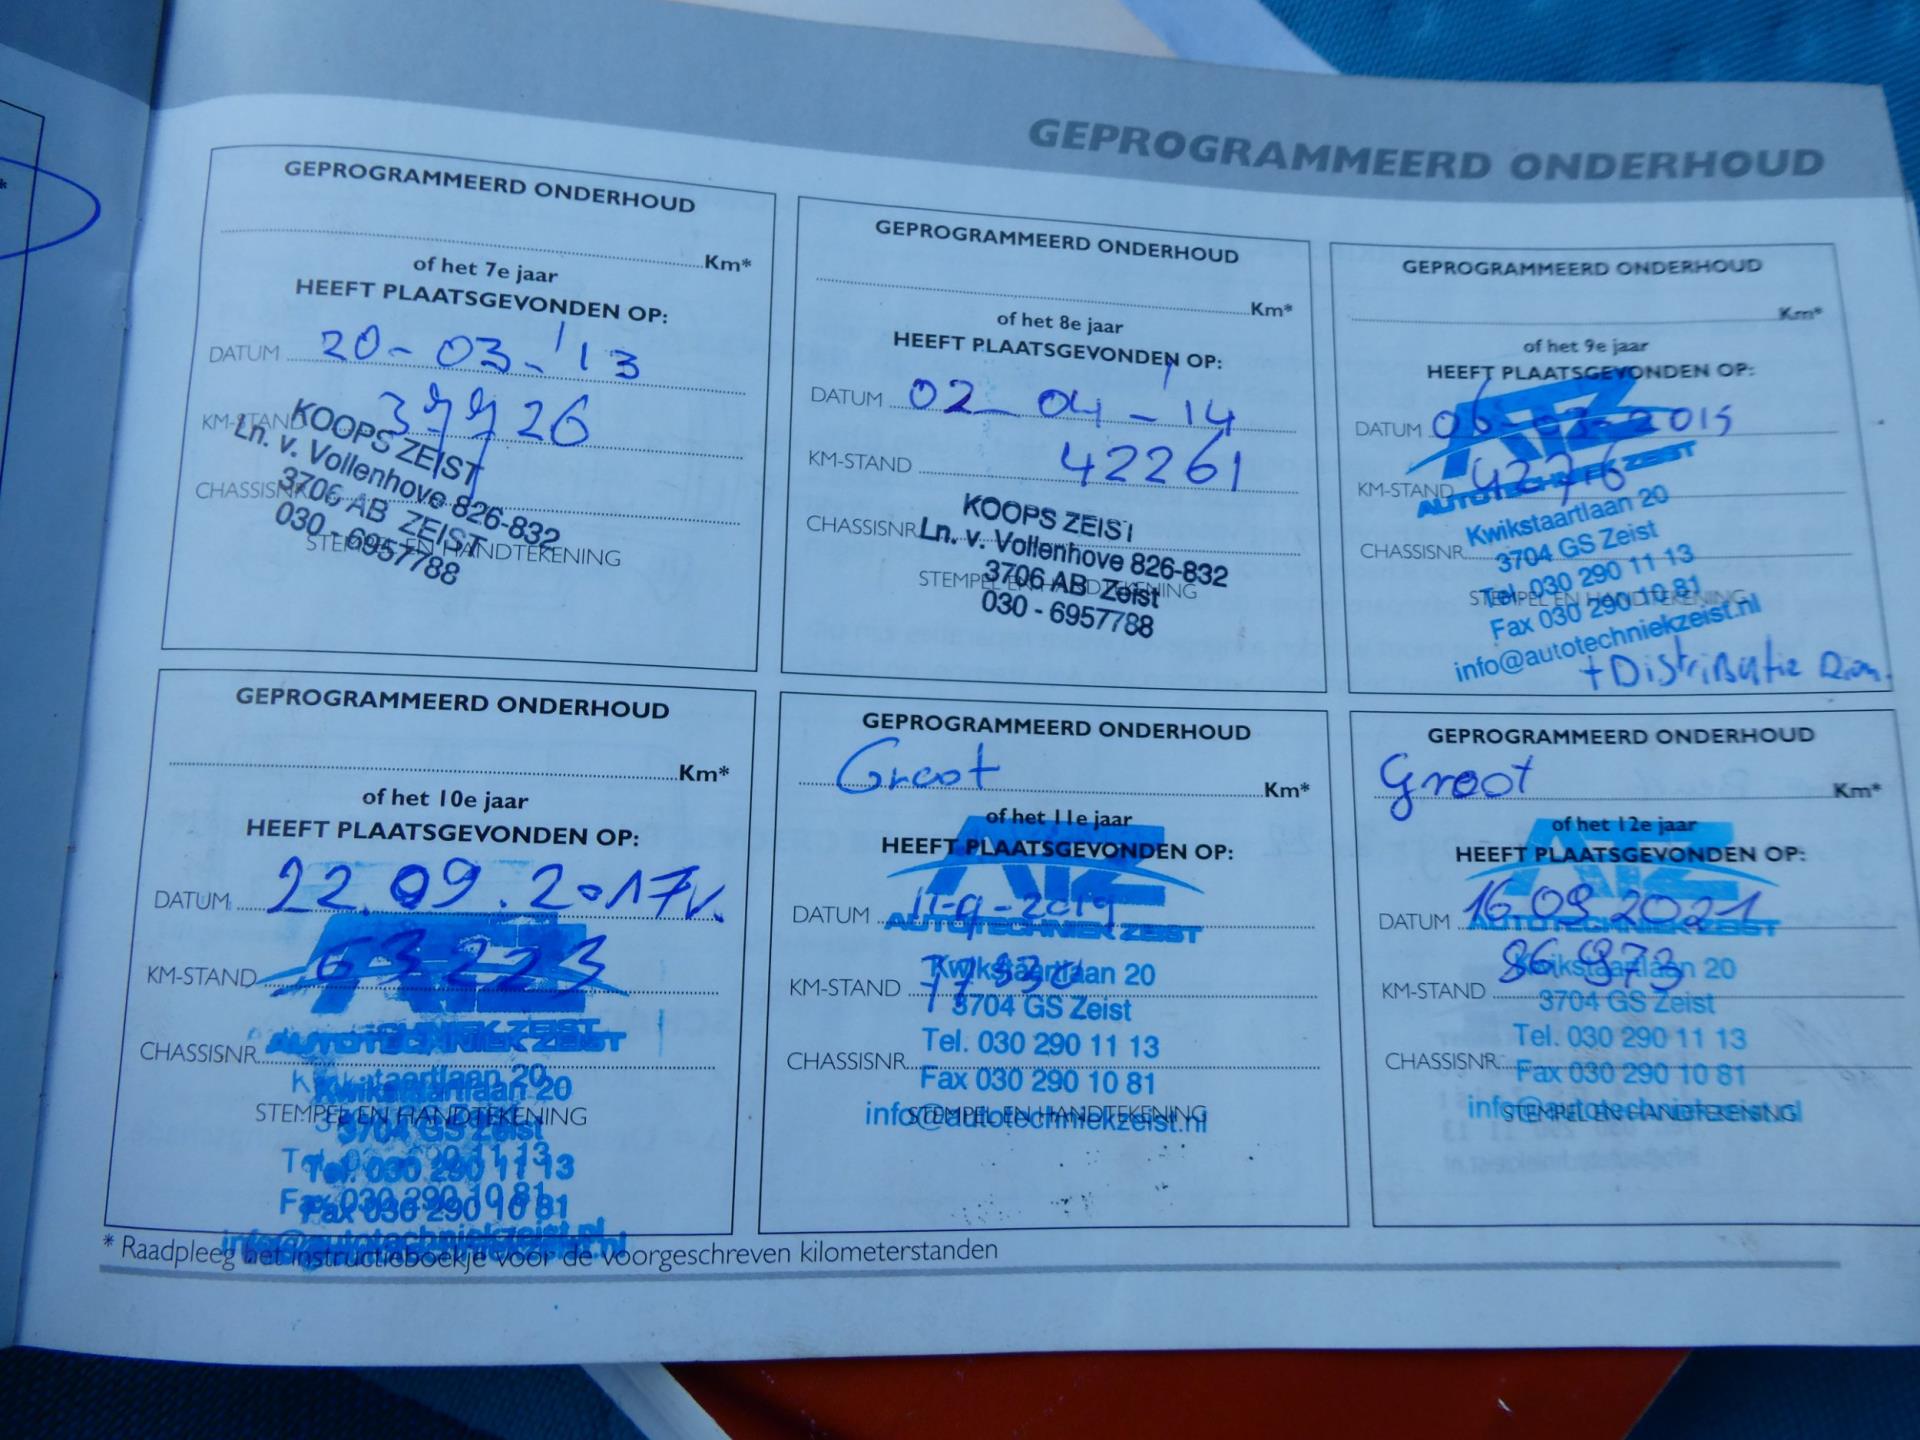 GEPROGRAMMEERD ONDERHOUD
GEPROGRAMMEERD ONDERHOUD
Km*
of het 7e jaar
HEEFT PLAATSGEVONDEN OP:
DATUM 20-03-'13
KM-STAND 39926
KOOPS ZEIST
Ln. v. Vollenhove 826-832
CHASSISNR
3706 AB ZEIST
030 - 6957788
STEMPEL EN HANDTEKENING
GEPROGRAMMEERD ONDERHOUD
Km*
of het 8e jaar
HEEFT PLAATSGEVONDEN OP:
DATUM 02-04-'14
KM-STAND 42261
KOOPS ZEIST
CHASSISNR.
Ln. v. Vollenhove 826-832
3706 AB Zeist
STEMPEL EN HANDTEKENING
030 - 6957788
GEPROGRAMMEERD ONDERHOUD
Km*
of het 9e jaar
HEEFT PLAATSGEVONDEN OP:
ATZ
DATUM 06-03-2015
AUTOTECHNIEK ZEIST
KM-STAND
Kwikstaartlaan 20
3704 GS Zeist
CHASSISNR.
Tel. 030 290 11 13
STEMPEL EN HANDTEKENING
Fax 030 290 10 81
info@autotechniekzeist.nl
+ Distributie Riem.
GEPROGRAMMEERD ONDERHOUD
Km*
of het 10e jaar
HEEFT PLAATSGEVONDEN OP:
DATUM 22.09.2017
ATZ
KM-STAND 63223
AUTOTECHNIEK ZEIST
CHASSISNR.
Kwikstaartlaan 20
STEMPEL EN HANDTEKENING
3704 GS Zeist
Tel. 030 290 11 13
Fax 030 290 10 81
info@autotechniekzeist.nl
GEPROGRAMMEERD ONDERHOUD
Groot Km*
of het 11e jaar
HEEFT PLAATSGEVONDEN OP:
ATZ
DATUM 11-9-2019
AUTOTECHNIEK ZEIST
Kwikstaartlaan 20
KM-STAND
3704 GS Zeist
Tel. 030 290 11 13
CHASSISNR.
Fax 030 290 10 81
STEMPEL EN HANDTEKENING
info@autotechniekzeist.nl
GEPROGRAMMEERD ONDERHOUD
Groot Km*
of het 12e jaar
HEEFT PLAATSGEVONDEN OP:
ATZ
DATUM 16 09 2021
AUTOTECHNIEK ZEIST
Kwikstaartlaan 20
KM-STAND 86973
3704 GS Zeist
Tel. 030 290 11 13
CHASSISNR.
Fax 030 290 10 81
STEMPEL EN HANDTEKENING
info@autotechniekzeist.nl
* Raadpleeg het instructieboekje voor de voorgeschreven kilometerstanden